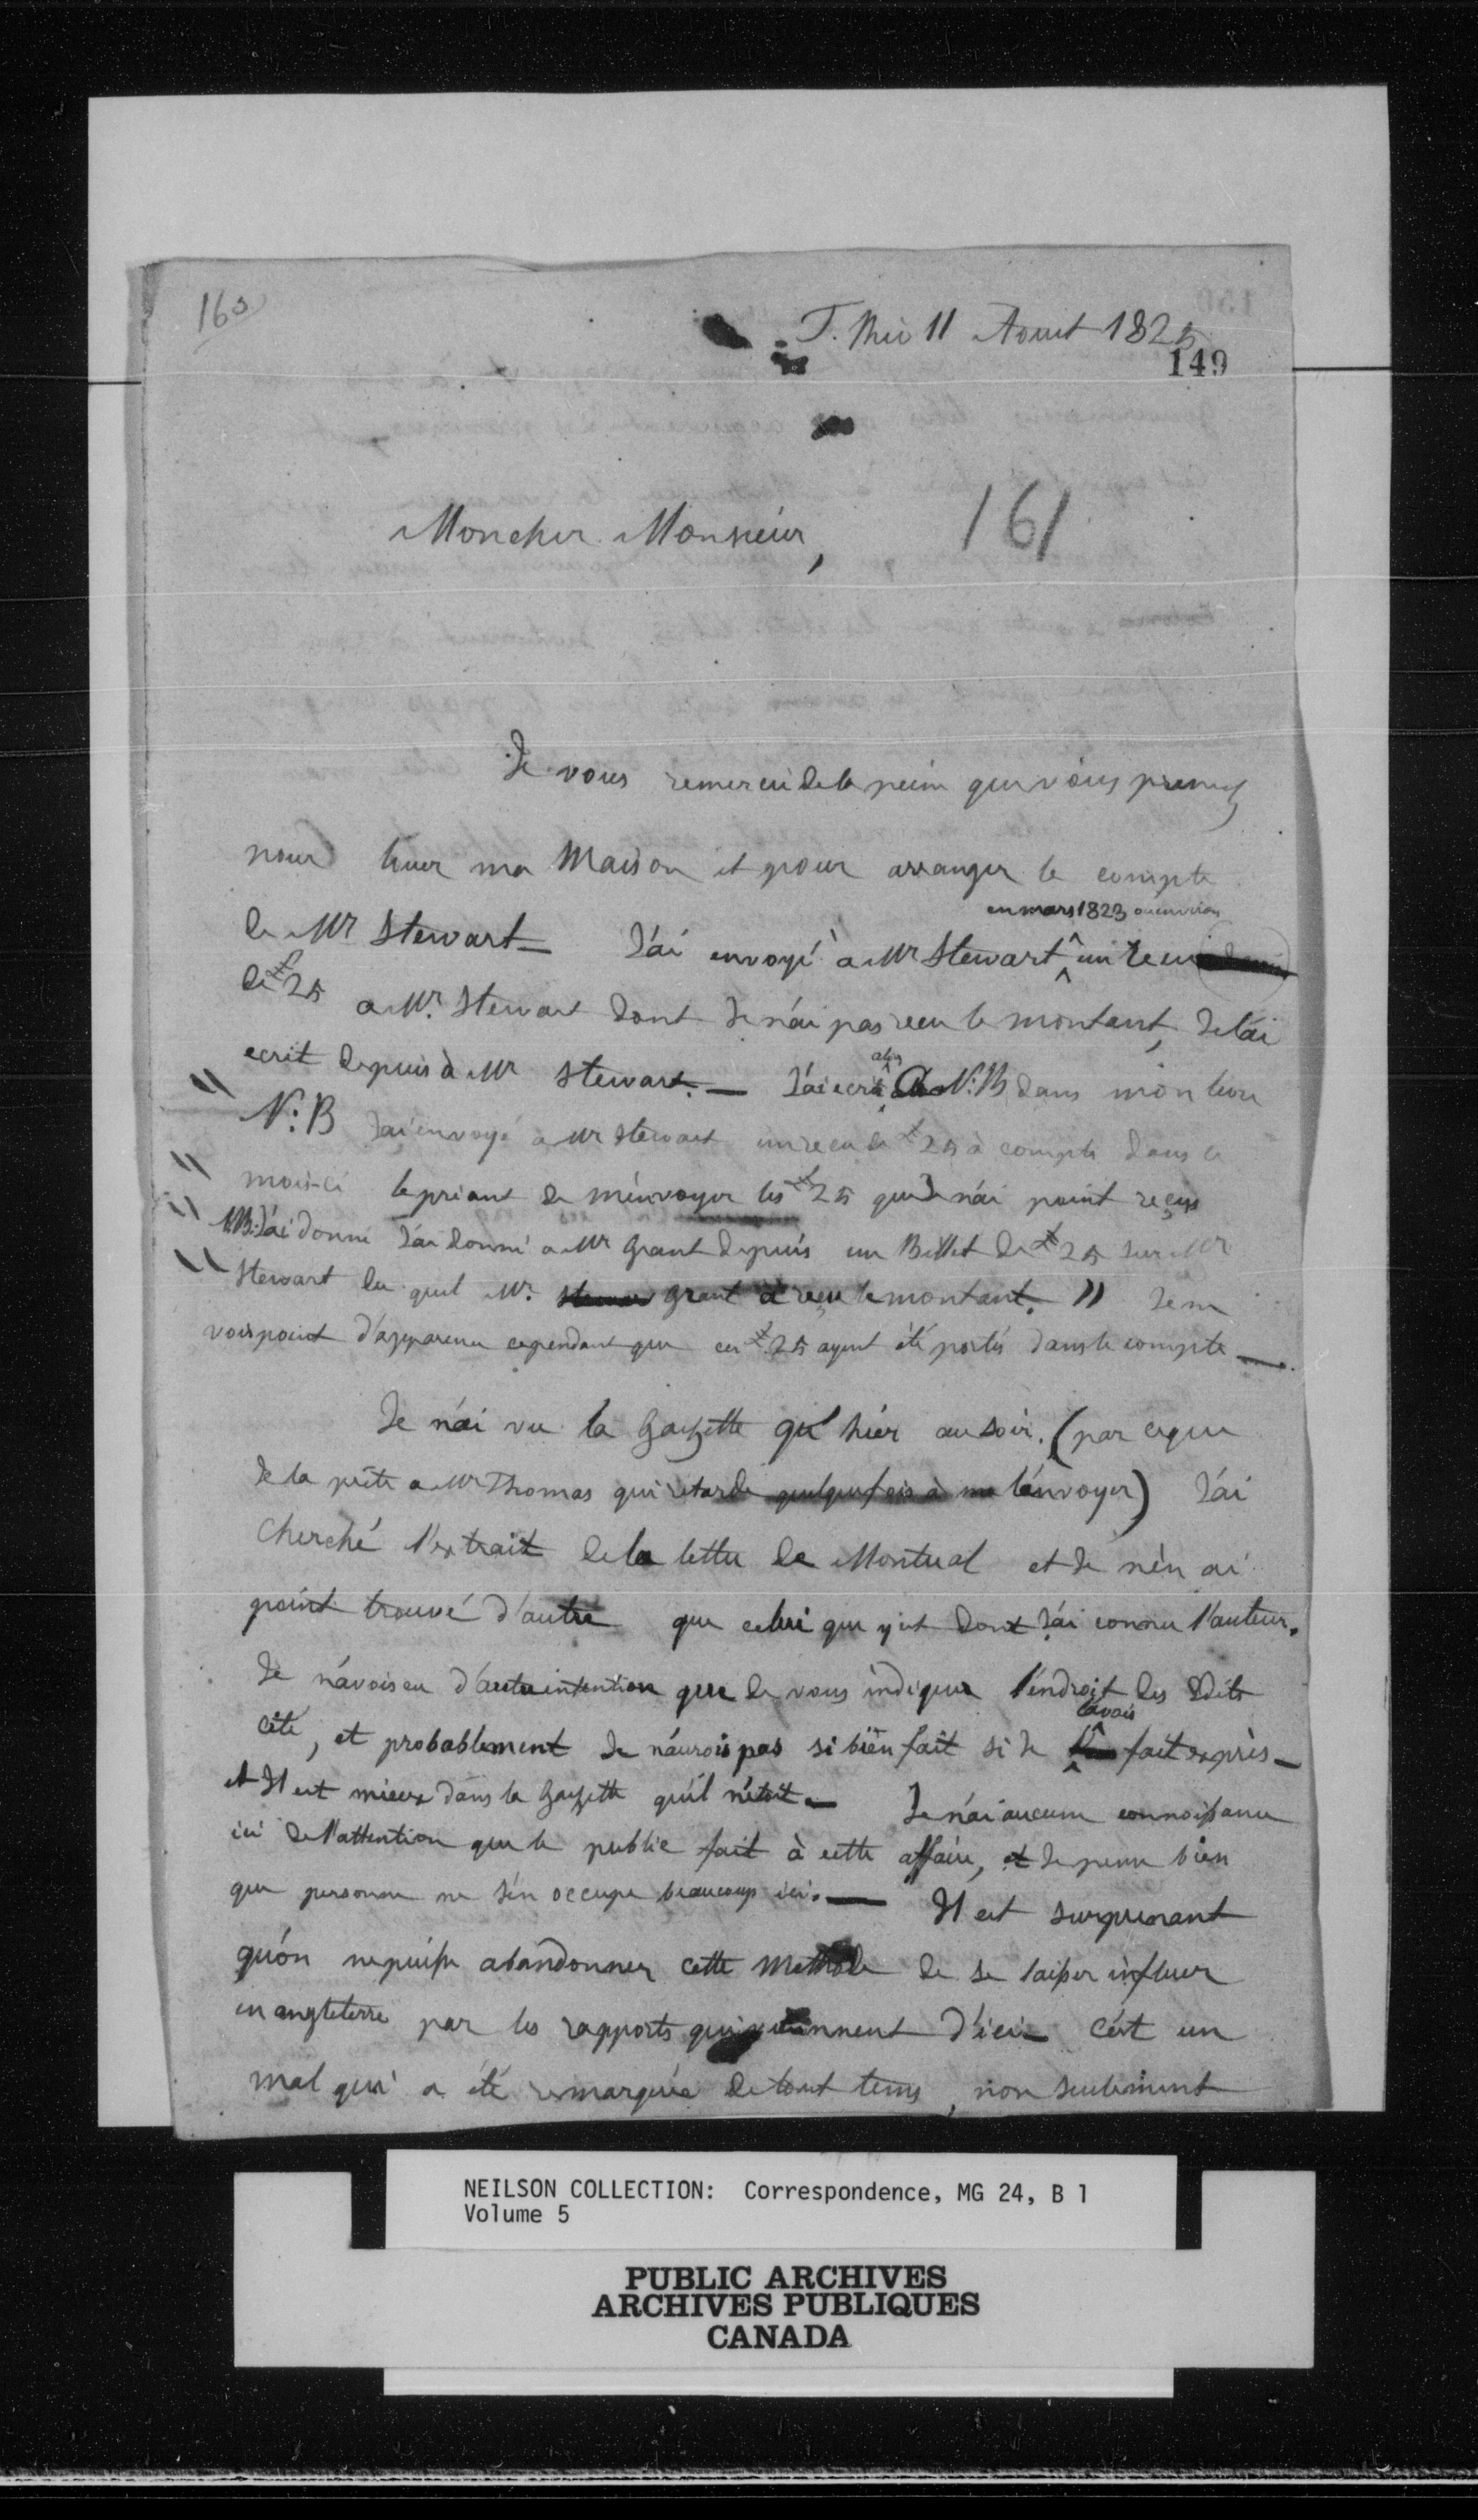 160
T. Riv 11 Aout 1825
149
Mon cher Monsieur,
161
Je vous remercie de la peine que vous prenez
pour louer ma Maison et pour arranger le compte
en mars 1823 ou environ
de Mr Stewart — J'ai envoyé à Mr Stewart un recu
de £25 a Mr. Stewart dont Je n'ai pas recu le montant, Je l'ai
ecrit depuis à Mr Stewart. — J'ai ecrit alors N:B dans mon livre
" N:B J'ai envoyé a Mr Stewart un recu de £25 à compte dans ce
" mois-ci le priant de m'envoyer les £25 que Je n'ai point reçus
" N.B: J'ai donné J'ai donné a Mr Grant depuis un Billet de £25 sur Mr
" Stewart du quel Mr. Grant a reçu le montant. " Je ne
vois point d'apparence cependant que ces £25 ayent été portés dans le compte —.
Je n'ai vu la Gazette qu'hier au soir. (par ce que
Je la prête a Mr Thomas qui retarde quelquefois à me l'envoyer) J'ai
cherché l'extrait de la lettre de Montreal et Je n'en ai
point trouvé d'autre que celui qui y est dont J'ai connu l'auteur.
Je n'avois eu d'autre intention que de vous indiquer l'endroit des Edits
cité, et probablement Je n'aurois pas si bien fait si Je l'avais fait exprès —
et Il est mieux dans la Gazette qu'il n'étoit — Je n'ai aucune connoissance
ici de l'attention que le public fait à cette affaire, et Je pense bien
que personne ne s'en occupe beaucoup ici. — Il est surprenant
qu'on ne puisse abandonner cette Methode de se laisser influer
en angleterre par les rapports qui viennent d'ici — C'est un
mal qui a été remarquée de tout tems, non seulement
NEILSON COLLECTION: Correspondence, MG 24, B 1
Volume 5
PUBLIC ARCHIVES
ARCHIVES PUBLIQUES
CANADA